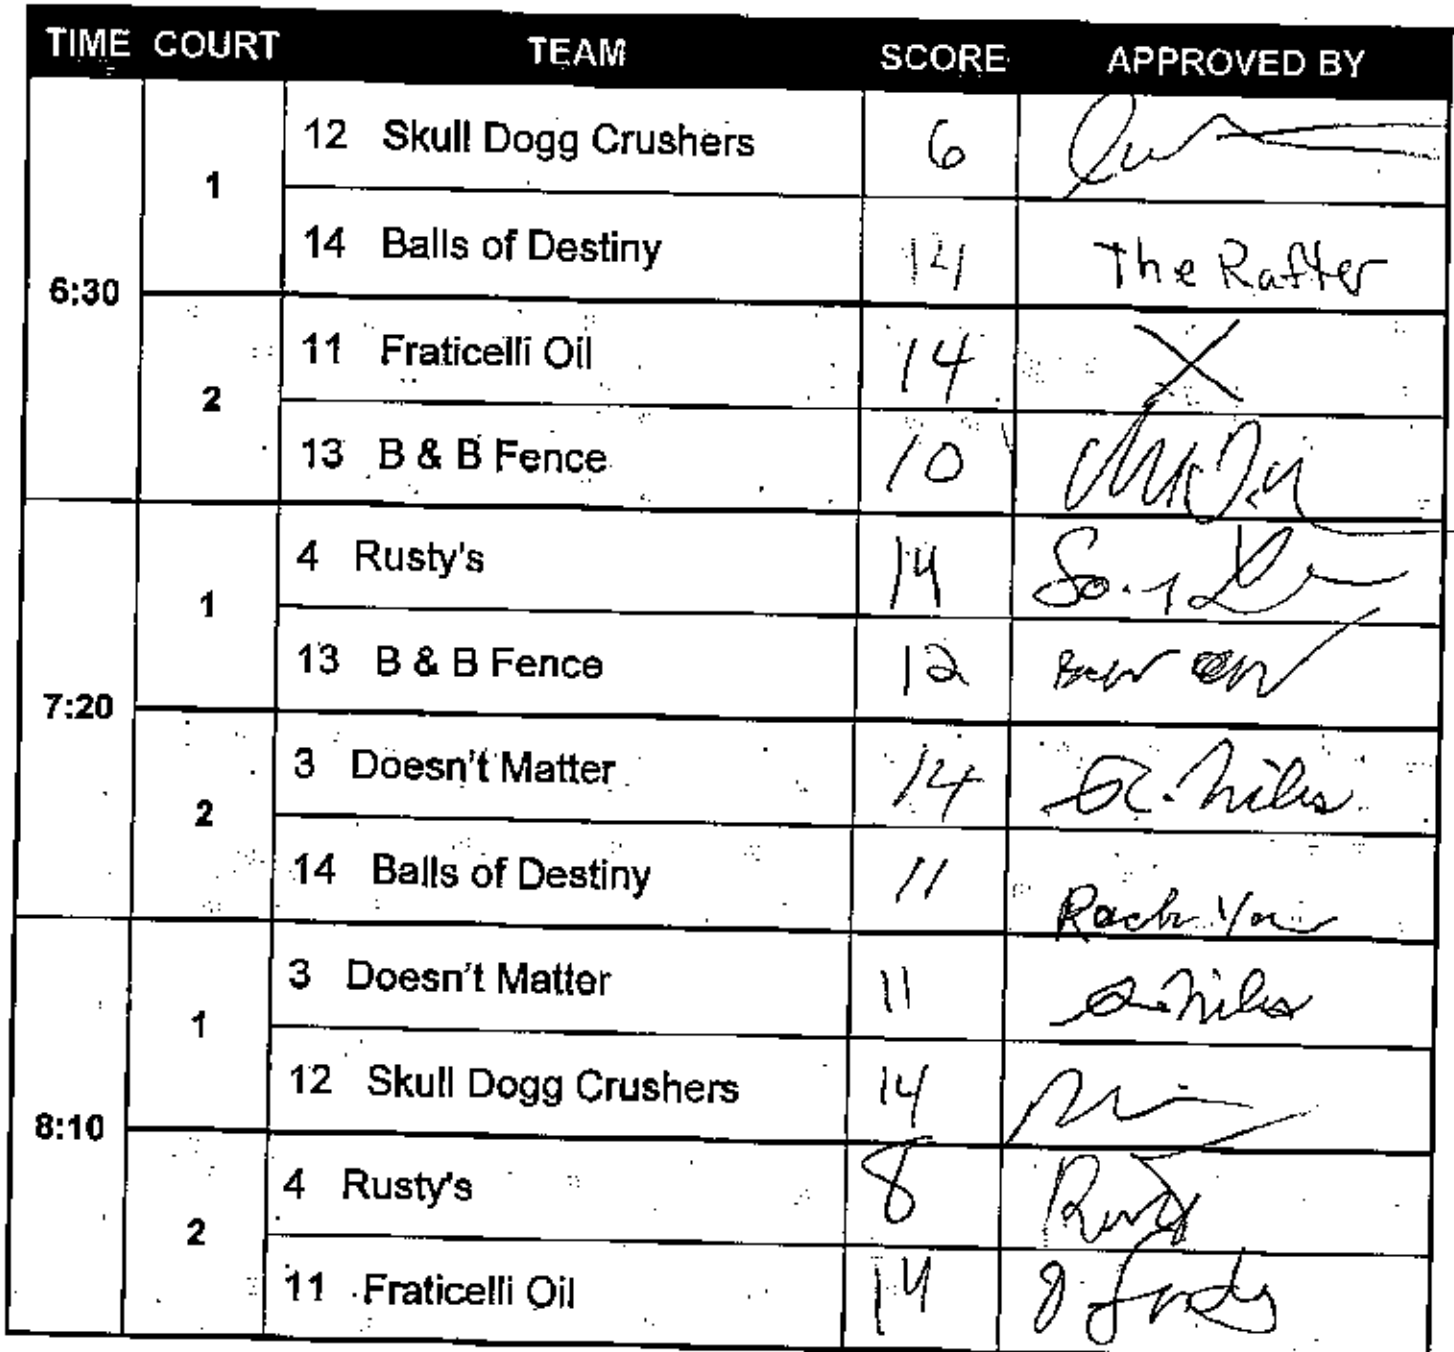 TIME COURT TEAM SCORE APPROVED BY
12 Skull Dogg Crushers 6
1
14 Balls of Destiny 14 The Rafter
6:30
11 Fraticelli Oil 14 X
2
13 B & B Fence 10
4 Rusty's 14
1
13 B & B Fence 12
7:20
3 Doesn't Matter 14
2
14 Balls of Destiny 11
3 Doesn't Matter 11
1
12 Skull Dogg Crushers 14
8:10
4 Rusty's 8 Rusty
2
11 Fraticelli Oil 14